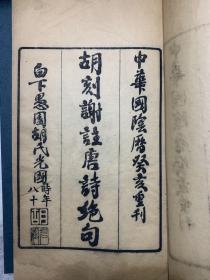 中華國陰曆癸亥重刊
胡刻謝註唐詩絶句
白下愚園胡氏光國時年八十